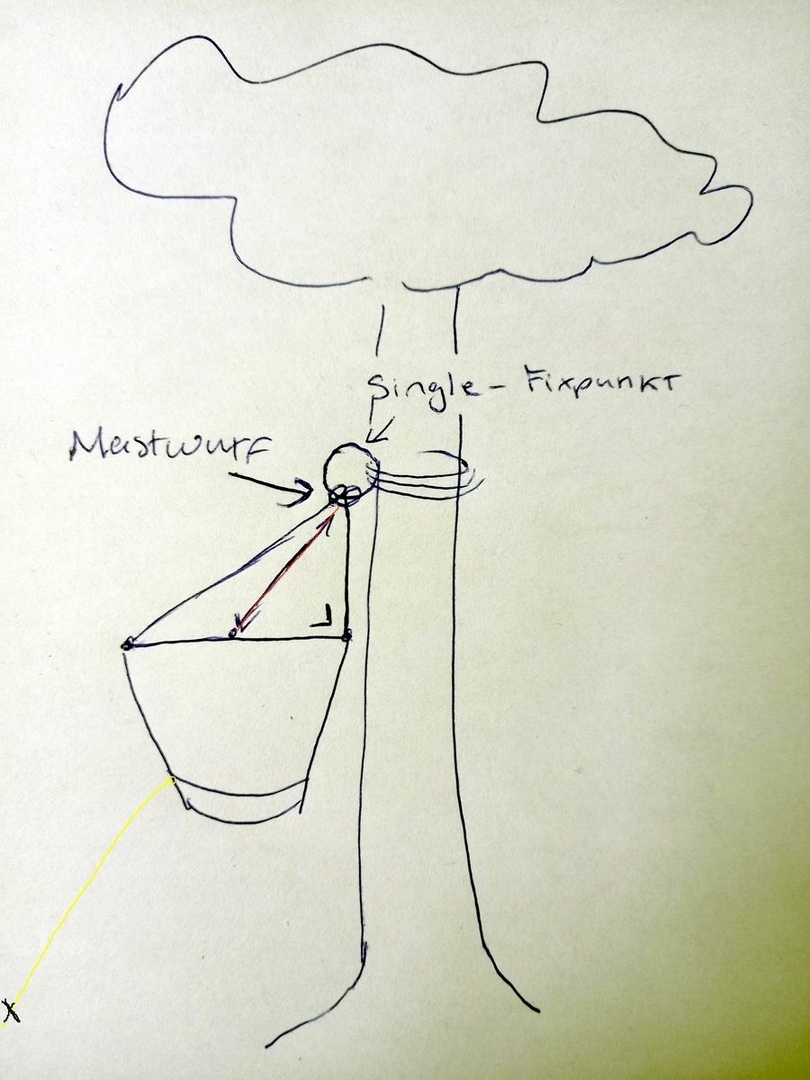 Single - Fixpunkt
Mastwurf
x